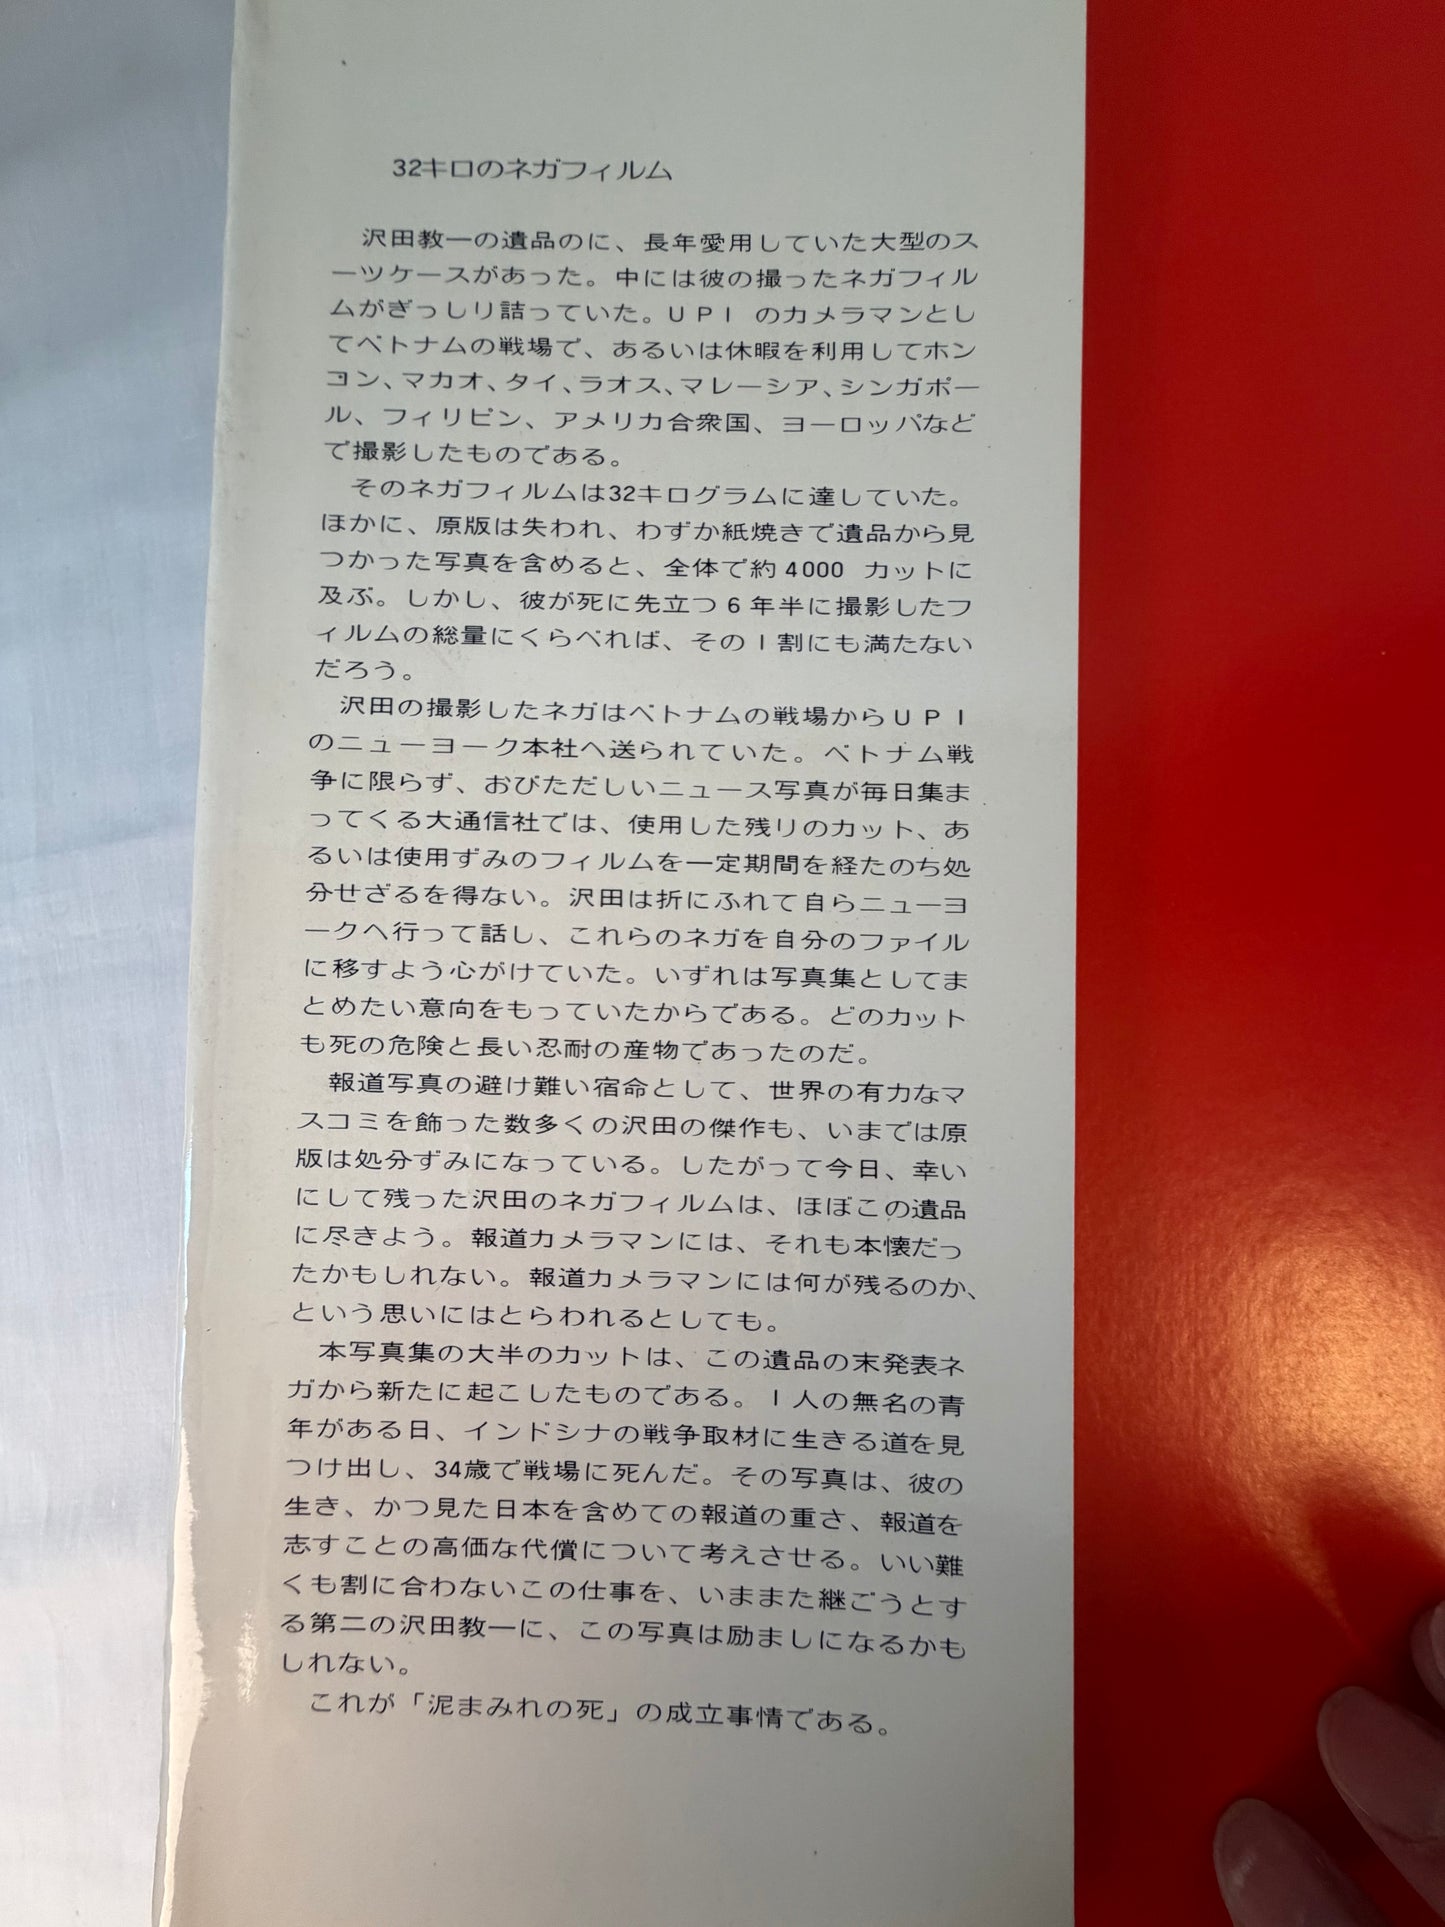 32キロのネガフィルム
沢田教一の遺品のに、長年愛用していた大型のス
ーツケースがあった。中には彼の撮ったネガフィル
ムがぎっしり詰っていた。UPI のカメラマンとし
てベトナムの戦場で、あるいは休暇を利用してホン
コン、マカオ、タイ、ラオス、マレーシア、シンガポー
ル、フィリピン、アメリカ合衆国、ヨーロッパなど
で撮影したものである。
そのネガフィルムは32キログラムに達していた。
ほかに、原版は失われ、わずか紙焼きで遺品から見
つかった写真を含めると、全体で約4000 カットに
及ぶ。しかし、彼が死に先立つ6年半に撮影したフ
ィルムの総量にくらべれば、その1割にも満たない
だろう。
沢田の撮影したネガはベトナムの戦場からUPI
のニューヨーク本社へ送られていた。ベトナム戦
争に限らず、おびただしいニュース写真が毎日集ま
ってくる大通信社では、使用した残りのカット、あ
るいは使用ずみのフィルムを一定期間を経たのち処
分せざるを得ない。沢田は折にふれて自らニューヨ
ークへ行って話し、これらのネガを自分のファイル
に移すよう心がけていた。いずれは写真集としてま
とめたい意向をもっていたからである。どのカット
も死の危険と長い忍耐の産物であったのだ。
報道写真の避け難い宿命として、世界の有力なマ
スコミを飾った数多くの沢田の傑作も、いまでは原
版は処分ずみになっている。したがって今日、幸い
にして残った沢田のネガフィルムは、ほぼこの遺品
に尽きよう。報道カメラマンには、それも本懐だっ
たかもしれない。報道カメラマンには何が残るのか、
という思いにはとらわれるとしても。
本写真集の大半のカットは、この遺品の末発表ネ
ガから新たに起こしたものである。1人の無名の青
年がある日、インドシナの戦争取材に生きる道を見
つけ出し、34歳で戦場に死んだ。その写真は、彼の
生き、かつ見た日本を含めての報道の重さ、報道を
志すことの高価な代償について考えさせる。いい難
くも割に合わないこの仕事を、いままた継ごうとす
る第二の沢田教一に、この写真は励ましになるかも
しれない。
これが「泥まみれの死」の成立事情である。